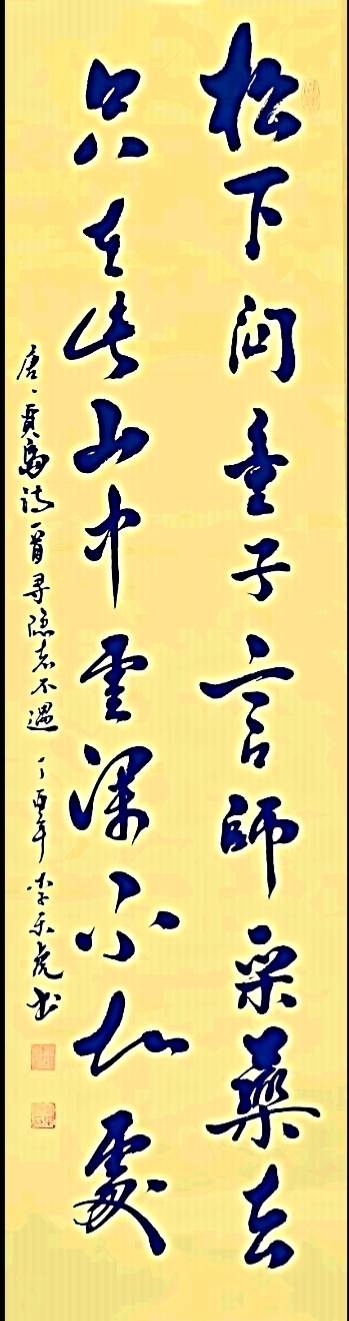 松下问童子言師采藥去
只在此山中雲深不知處
唐、賈島诗一首尋隐者不遇 丁酉年 李乐虎书